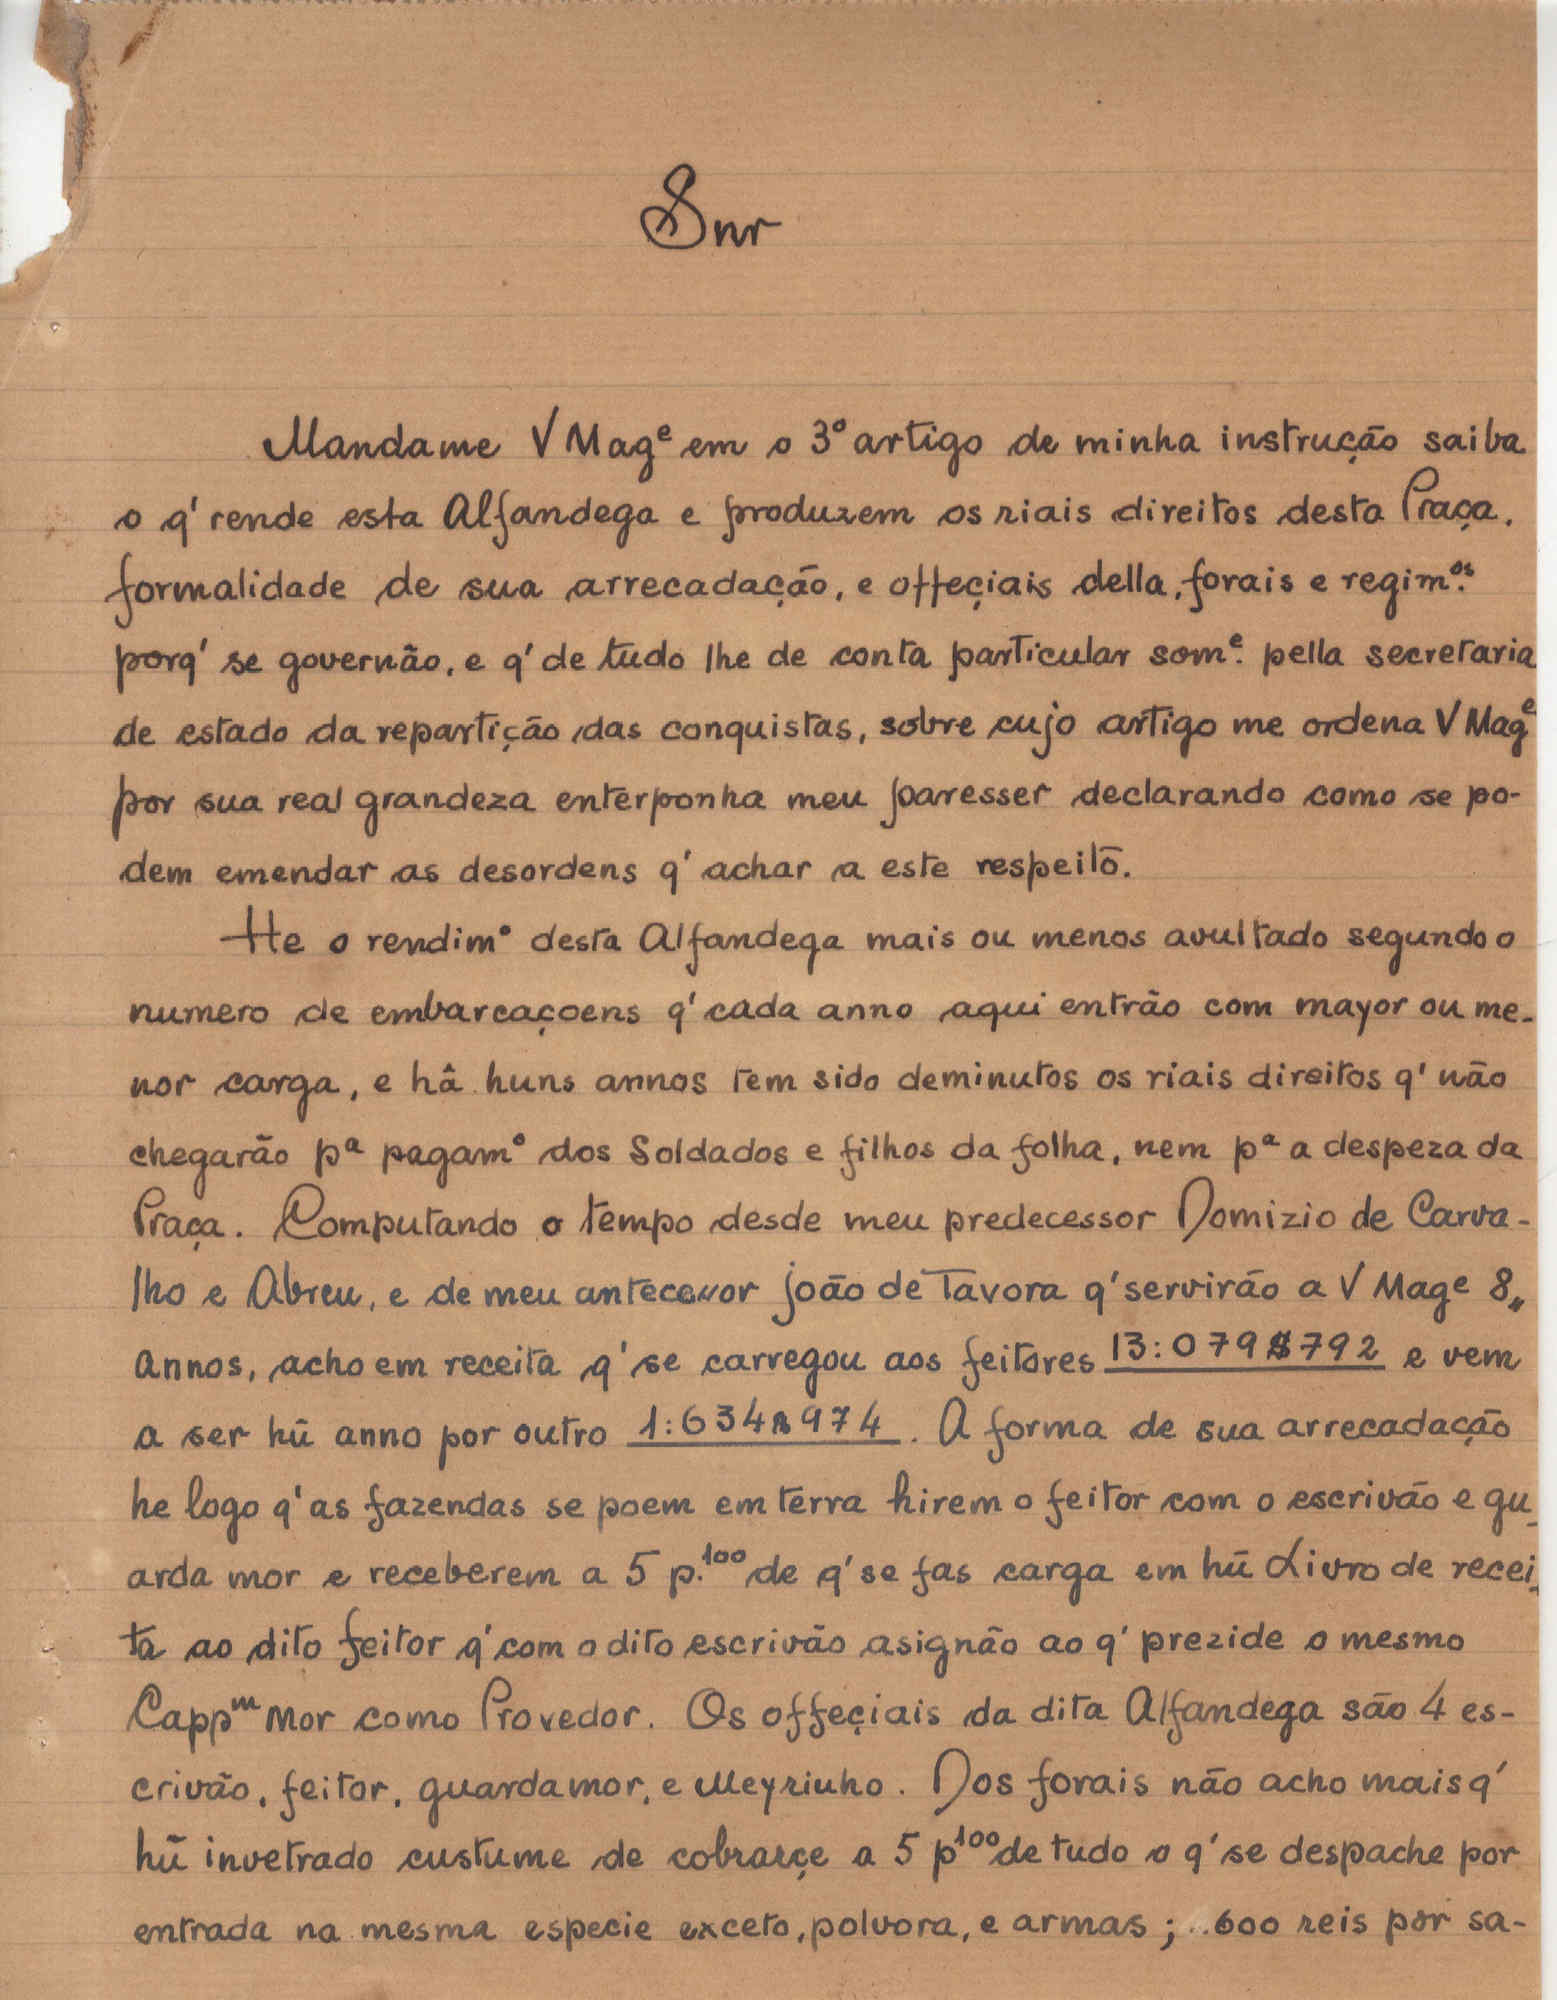 Snr
Mandame V Magᵉ em o 3º artigo de minha instrução saiba
o q' rende esta Alfandega e produzem os riais direitos desta Praça,
formalidade de sua arrecadação, e offeçiais della, forais e regim.ᵒˢ
porq' se governão, e q' de tudo lhe de conta particular somᵉ. pella secretaria
de estado da repartição das conquistas, sobre cujo artigo me ordena V Magᵉ
por sua real grandeza enterponha meu paresser declarando como se po-
dem emendar as desordens q' achar a este respeito.
He o rendimº desta Alfandega mais ou menos avultado segundo o
numero de embarcaçoens q' cada anno aqui entrão com mayor ou me-
nor carga, e hâ huns annos tem sido deminutos os riais direitos q' não
chegarão pª pagamº dos Soldados e filhos da folha, nem pª a despeza da
Praça. Computando o tempo desde meu predecessor Domizio de Carva-
lho e Abreu, e de meu antecessor joão de Tavora q' servirão a V Magᵉ 8,,
annos, acho em receita q' se carregou aos feitores 13:079$792 e vem
a ser hũ anno por outro 1:634$974. A forma de sua arrecadação
he logo q' as fazendas se poem em terra hirem o feitor com o escrivão e gu-
arda mor e receberem a 5 p.¹⁰⁰ de q' se fas carga em hũ Livro de recei-
ta ao dito feitor q' com o dito escrivão asignão ao q' prezide o mesmo
Cappᵐ Mor como Provedor. Os offeçiais da dita Alfandega são 4 es-
crivão, feitor, guardamor, e Meyrinho. Dos forais não acho mais q'
hũ invetrado custume de cobrarçe a 5 p¹⁰⁰ de tudo o q' se despache por
entrada na mesma especie exceto, polvora, e armas; ..600 reis por sa-